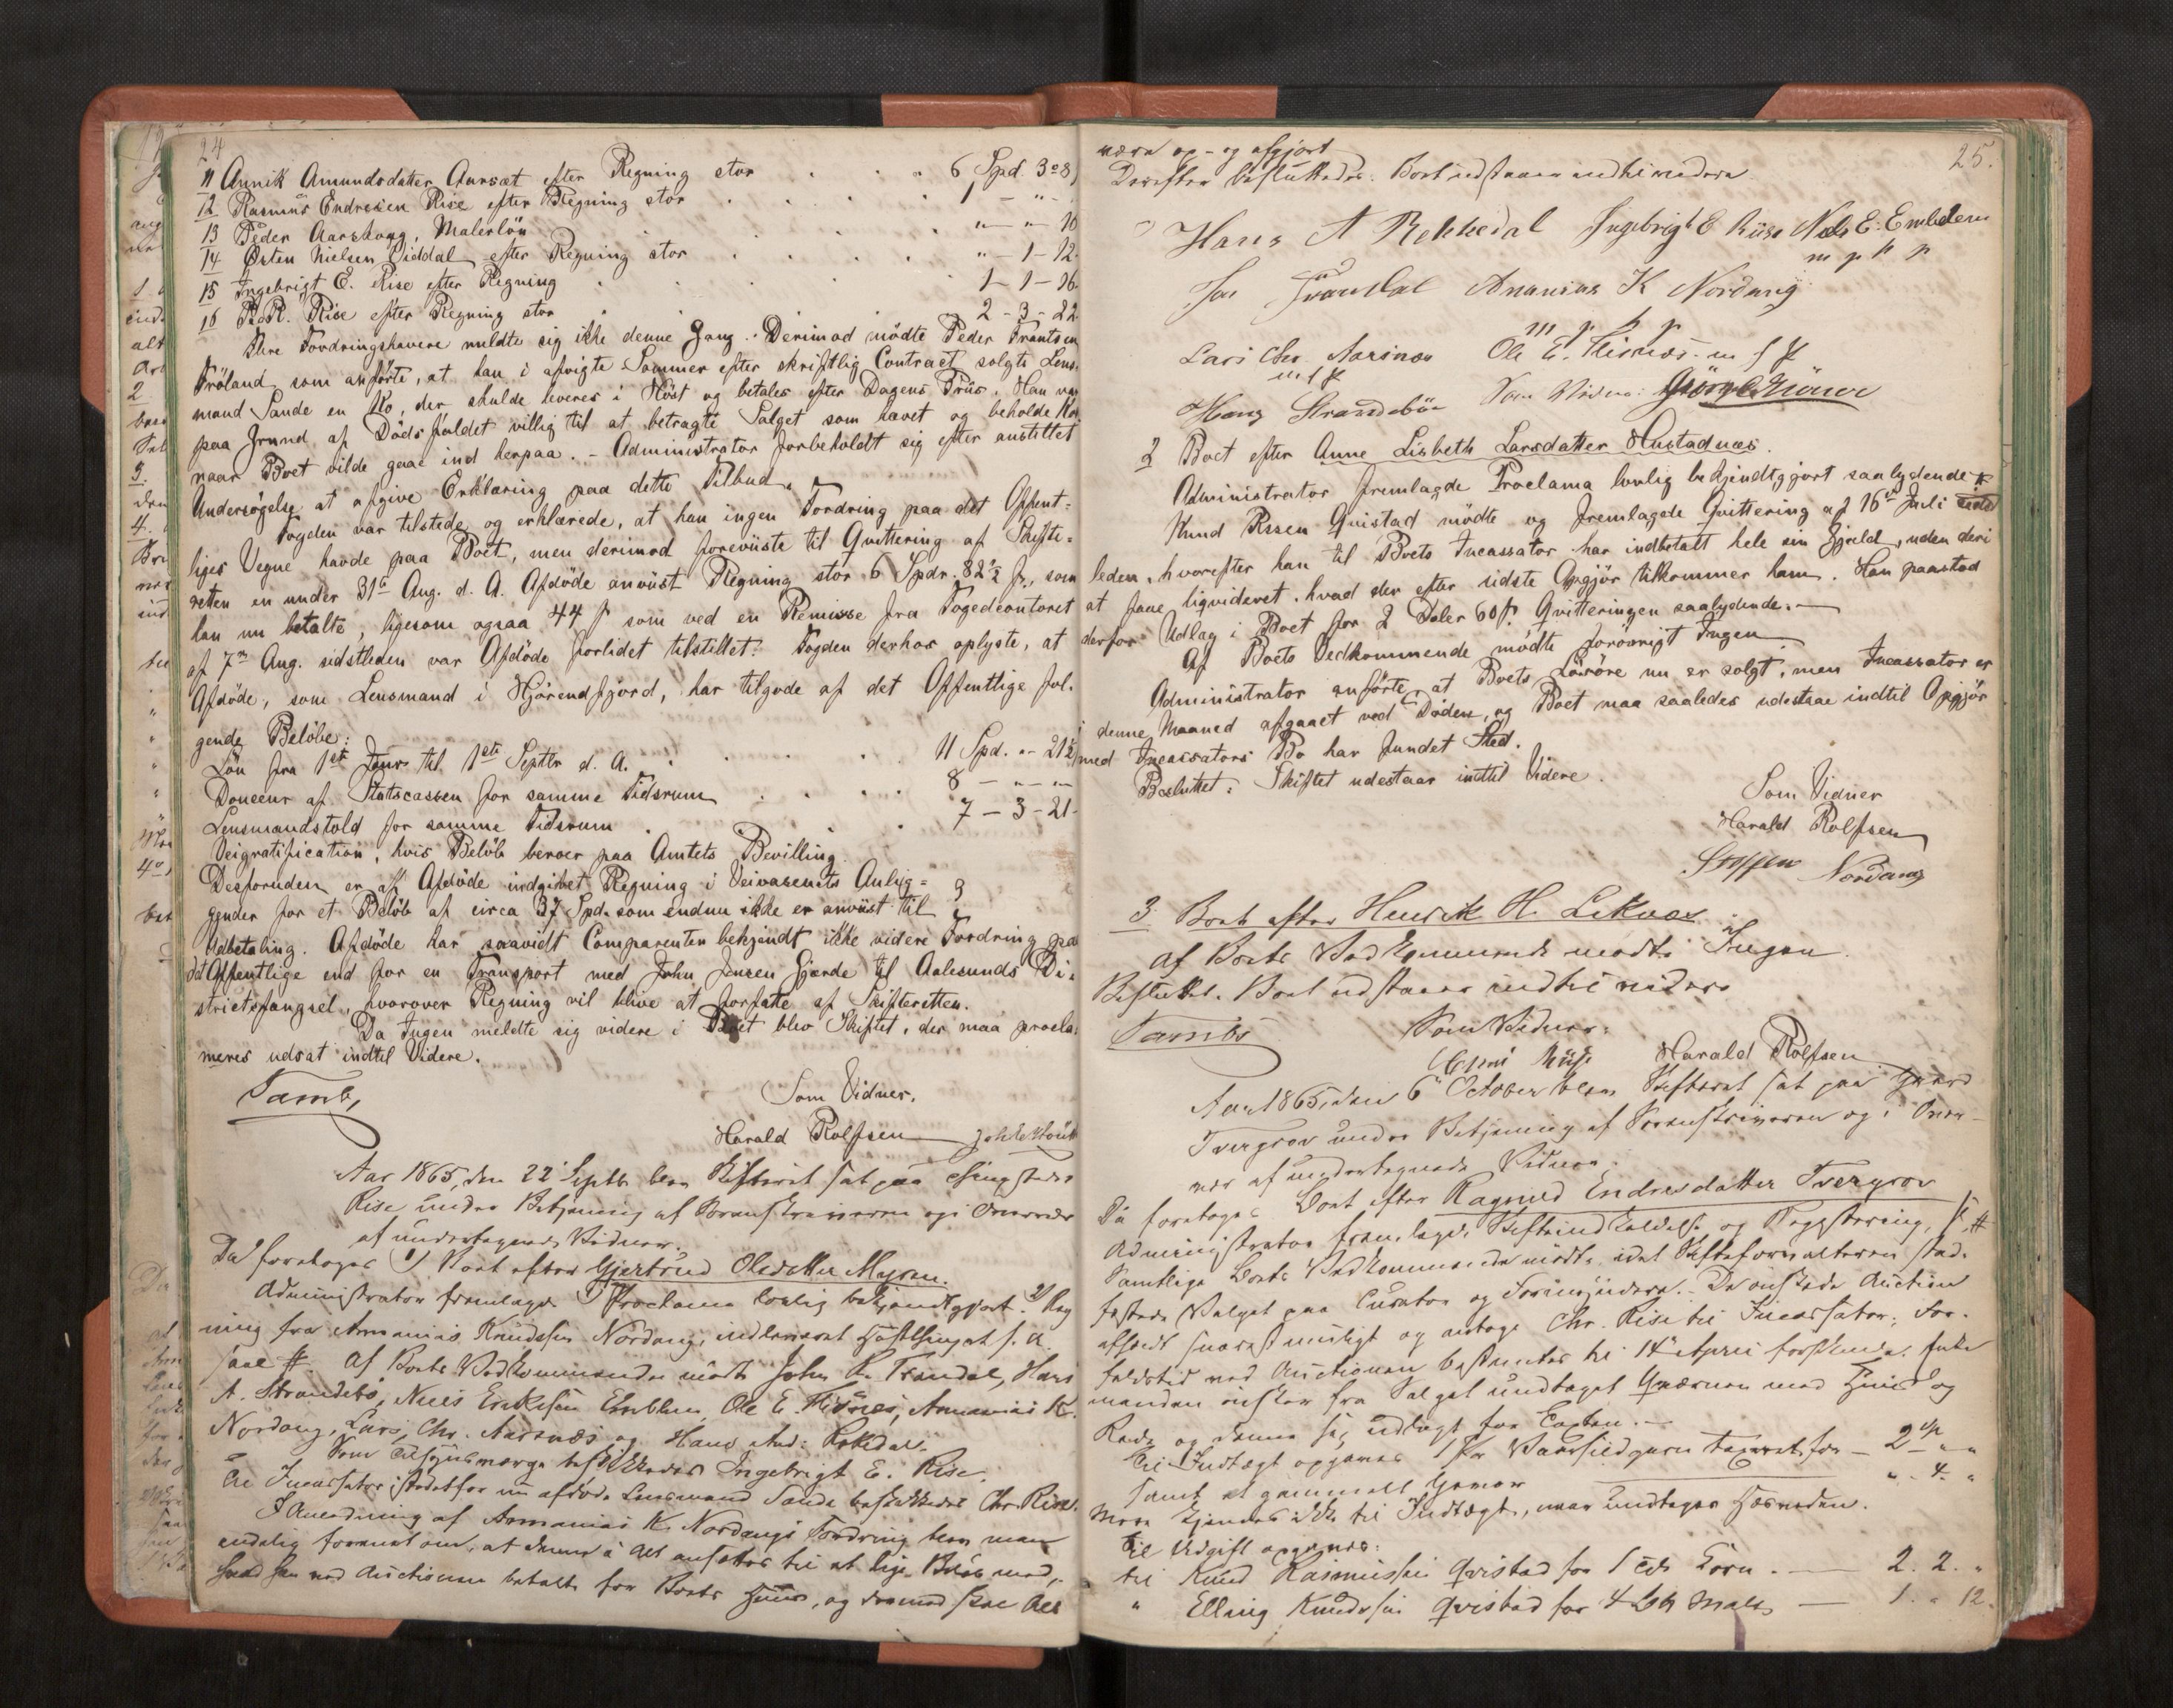 24
11 Annik Amundsdatter Aarsæt efter Regning stor . . . 6 Spd. 3 " 8
12 Rasmus Endresen Rise efter Regning stor . . . . 1 - " - "
13 Peder Aarskogg, Malerlön . . . " - " - 10
14 Østen Nielsen Viddal efter Regning stor . . . " - 1 - 12.
15 Ingebrigt E. Rise efter Regning . . . . 1 - 1 - 16.
16 R. R. Rise efter Regning stor . . . 2 - 3 - 22.
Flere Fordringshavere meldte sig ikke denne Gang. Derimod mödte Peder Frantsen
Fröland som anförte, at han i afvigte Sommer efter skriftlig Contract solgte Lens-
mand Sande en Ko, der skulde leveres i Höst og betales efter Dagens Priis. Han var
paa Grund af Dödsfaldet villig til at betragte Salget som hævet og beholde Ko
naar Boet vilde gaae ind herpaa. - Administrator forbeholdt sig efter anstillet
Undersögelse at afgive Erklæring paa dette Tilbud.
Fogden var tilstede og erklærede, at han ingen Fordring paa det Offent-
liges Vegne havde paa Boet, men derimod foreviiste til Qvittering af Skifte-
retten en under 31te Aug. d. A. Afdöde anviist Regning stor 6 Spdr. 82½ ß, som
han nu betalte, ligesom ogsaa 44 ß som ved en Remisse fra Fogedcontoret
af 7de Aug. sidstleden var Afdöde forlidet tilstillet. Fogden derhos oplyste, at
Afdöde, som Lensmand i Hjörendfjord, har tilgode af det Offentlige föl-
gende Belöb:
Lön fra 1ste Januar til 1ste Septbr d. A. . . . . 11 Spd. " - 21½
Douceur af Statscassen for samme Tidsrum . . . . 8 - " - "
Lensmandstold for samme Tidsrum . . . 7 - 3 - 21.
Veigratification, hvis Belöb beroer paa Amtets Bevilling.
Desforuden er af Afdöde indgivet Regning i Veivæsenets Anlig-
gender for et Belöb af circa 37 Spd. som endnu ikke er anviist til
Udbetaling. Afdöde har saavidt Comparenten bekjendt ikke videre Fordring paa
det Offentlige end for en Transport med John Jensen Gjærde til Aalesunds Di-
strictsfængsel, hvorover Regning vil blive at forfatte af Skifteretten.
Da Ingen meldte sig videre i Boet blev Skiftet, der maa procla-
meres udsat indtil Videre.
Tambs
Som Vidner.
Harald Rolfsen
Aar 1865, den 22 Septbr blev Skifteret sat paa Thingstedet
Rise under Betjening af Sorenskriveren og i Overvær
af undertegnede Vidner.
Da foretoges 1) Boet efter Gjertrud Olsdatter Myren.
Administrator fremlagde 1) Proclama lovlig bekjendtgjort. 2) Reg
ning fra Ananias Knudsen Nordang, indleveret Høstthinget f. A.
saal # Af Boets Vedkommende mødte John R. Trandal, Hans
A. Strandebø, Niels Eriksen Emblem, Ole E. Flisnæs, Ananias K.
Nordang, Lars Chr. Aarsnæs og Hans And: Rekkedal.
Som Tilsynsværge beskikkedes Ingebrigt E. Rise.
Til Incassator istedetfor nu afdøde Lensmand Sande beskikkedes Chr. Rise.
I Anledning af Ananias K. Nordangs Fordring blev man
endelig forenet om, at denne i Alt ansættes til et lige Beløb med,
hvad han ved Auctionen betalte for Boets Huus, og dermed skal Alt
25.
være op- og afgjort
Derefter besluttedes: Boet udstaaer indtil videre.
Hans A Rekkedal Ingebrigt E Riise Nels E. Emblem
m p p
Jon Trandal Ananias K Nordang
m p p
Lars Chr. Aarsnæs Ole E. Flisnæs m f P
m f P
Hans Strandebøe Som Vidne:
2 Boet efter Anne Lisbeth Larsdatter Hustadnæs.
Administrator fremlagde Proclama lovlig bekjendtgjort saalydende #
Knud Rssen Qvistad mödte og fremlagde Qvittering af 16de Juli sidst
leden, hvorefter han til Boets Incassator har indbetalt hele sin Gjæld, uden deri
at faae liqvideret, hvad der efter sidste Opgjör tilkommer ham. Han paastod
derfor Udlæg i Boet for 2 Daler 60 ß. Qvitteringen saalydende. —
Af Boets Vedkommende mödte forövrigt Ingen.
Administrator anförte, at Boets Lösöre nu er solgt, men Incassator er
i denne Maaned afgaaet ved Döden, og Boet maa saaledes udestaae indtil Opgjör
med Incassators Bo har fundet Sted.
Besluttet: Skiftet udestaar indtil Videre.
Som Vidner
Harald Rolfsen
Steffen Nordang
3. Boet efter Henrik H. Leknæs.
Af Boets Vedkommende mødte Ingen.
Besluttet. Boet udstaaer indtil videre
Tambs
Som Vidner:
Harald Rolfsen
Aar 1865, den 6 October blev Skifteret sat paa Gaard
Tvergrov under Betjening af Sorenskriveren og i Over-
vær af undertegnede Vidner;
Da foretoges Boet efter Ragnild Endresdatter Tvergrov
Administrator fremlagde Skifteindkaldelse og Registrering, #
Samtlige Boets Vedkommende mødte, idet Skifteforvalteren stad-
fæstede Valget paa Curator og Formyndere. De ønskede Auction
afholdt snarest muligt og antoge Chr. Rise til Incassator. For-
faldstid ved Auctionen bestemtes til 14 April førstkom. Enke
manden ønsker fra Salget undtaget Qværnen med Huus og
Rede og denne sig udlagt for Taxten. —
Til Indtægt opgaves 1 Stk Vaarsildgarn taxeret for — 2 Sp " "
samt et gammelt Garn " . 4. "
Mere kjendes ikke til Indtægt, naar undtages Husraaden.
Til Udgift opgaves:
til Knud Rasmussen Qvistad for 1 Td Korn . — 2. 2. "
" Elling Knudsen Qvistad for 4 Lb Malt — 1. " 12.